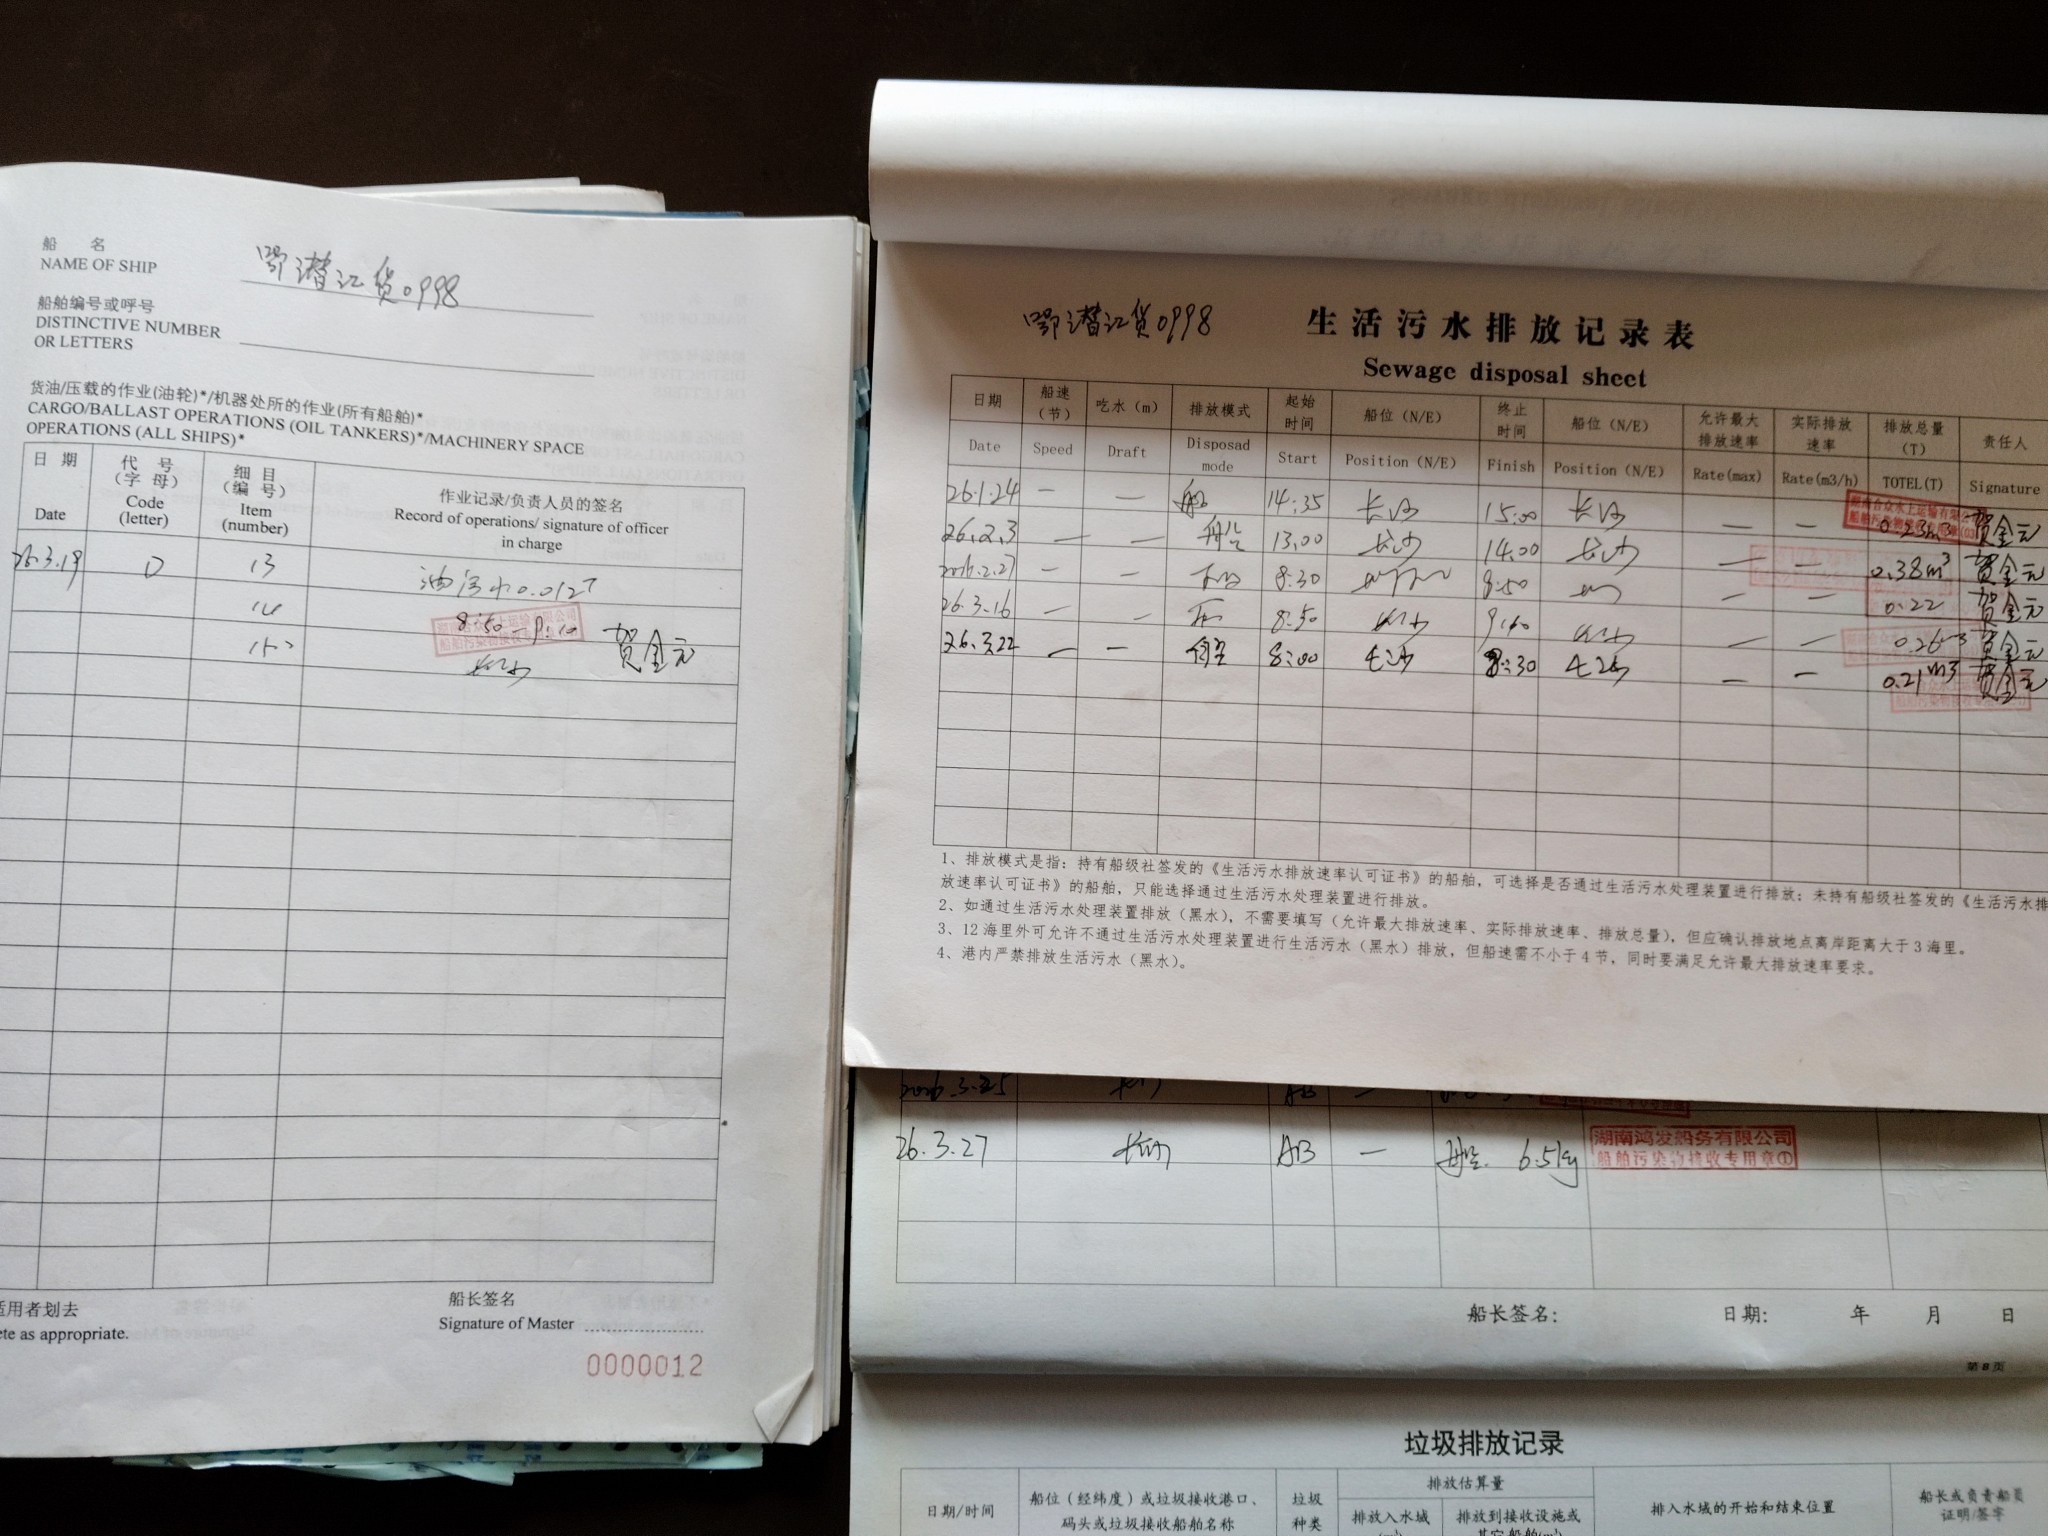 船 名
NAME OF SHIP
鄂潜江货0998
船舶编号或呼号
DISTINCTIVE NUMBER
OR LETTERS
货油/压载的作业(油轮)*/机器处所的作业(所有船舶)*
CARGO/BALLAST OPERATIONS (OIL TANKERS)*/MACHINERY SPACE
OPERATIONS (ALL SHIPS)*
日 期 代 号 (字 母) 细 目 (编 号) 作业记录/负责人员的签名
Date Code (letter) Item (number) Record of operations/ signature of officer in charge
26.3.19 D 13 油污水0.012T
14 8:50-9:10 贺金元
15 长沙
适用者划去
ete as appropriate.
船长签名
Signature of Master
0000012
鄂潜江货0998 生活污水排放记录表
Sewage disposal sheet
日期 船速（节） 吃水（m） 排放模式 起始时间 船位（N/E） 终止时间 船位（N/E） 允许最大排放速率 实际排放速率 排放总量（T） 责任人
Date Speed Draft Disposad mode Start Position（N/E） Finish Position（N/E） Rate(max) Rate(m3/h) TOTEL(T) Signature
26.1.24 — 船 14:35 长沙 15:00 长沙 — — 0.23m3 贺金元
26.2.3 — — 船 13:00 长沙 14:00 长沙 — — 0.38m³ 贺金元
2026.2.27 — — 8:30 8:50 — — 0.22 贺金元
26.3.16 — — 8:50 长沙 9:10 长沙 — — 0.26m3 贺金元
26.3.22 — — 8:00 长沙 8:30 长沙 — — 0.21m3 贺金元
1、排放模式是指：持有船级社签发的《生活污水排放速率认可证书》的船舶，可选择是否通过生活污水处理装置进行排放；未持有船级社签发的《生活污水排
放速率认可证书》的船舶，只能选择通过生活污水处理装置进行排放。
2、如通过生活污水处理装置排放（黑水），不需要填写（允许最大排放速率、实际排放速率、排放总量），但应确认排放地点离岸距离大于3海里。
3、12海里外可允许不通过生活污水处理装置进行生活污水（黑水）排放，但船速需不小于4节，同时要满足允许最大排放速率要求。
4、港内严禁排放生活污水（黑水）。
2026.3.25 AB —
26.3.27 AB — 船 6.5kg 湖南鸿发船务有限公司
船舶污染物接收专用章①
船长签名： 日期： 年 月 日
第 8 页
垃圾排放记录
日期/时间 船位（经纬度）或垃圾接收港口、码头或垃圾接收船舶名称 垃圾种类 排放估算量 排入水域的开始和结束位置 船长或负责船员证明/签字
排放入水域 排放到接收设施或